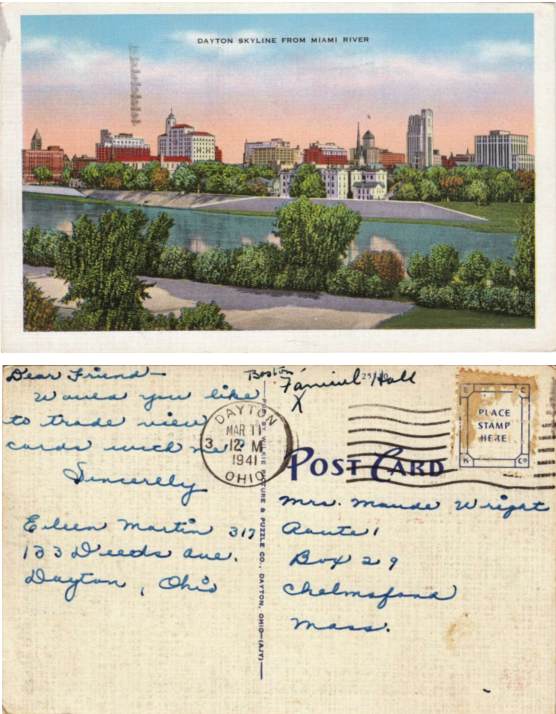 DAYTON SKYLINE FROM MIAMI RIVER
Dear Friend—
Would you like
to trade view
cards with me
Sincerely
Eileen Martin 317
133 Deeds Ave.
Dayton, Ohio
Boston
Hall
X
DAYTON
MAR 11
3 12 M
1941
OHIO
PLACE
STAMP
HERE
POST CARD
Mrs. Maude Wright
Route 1
Box 29
Chelmsford
Mass.
PICTURE & PUZZLE CO., DAYTON, OHIO—(A/T)